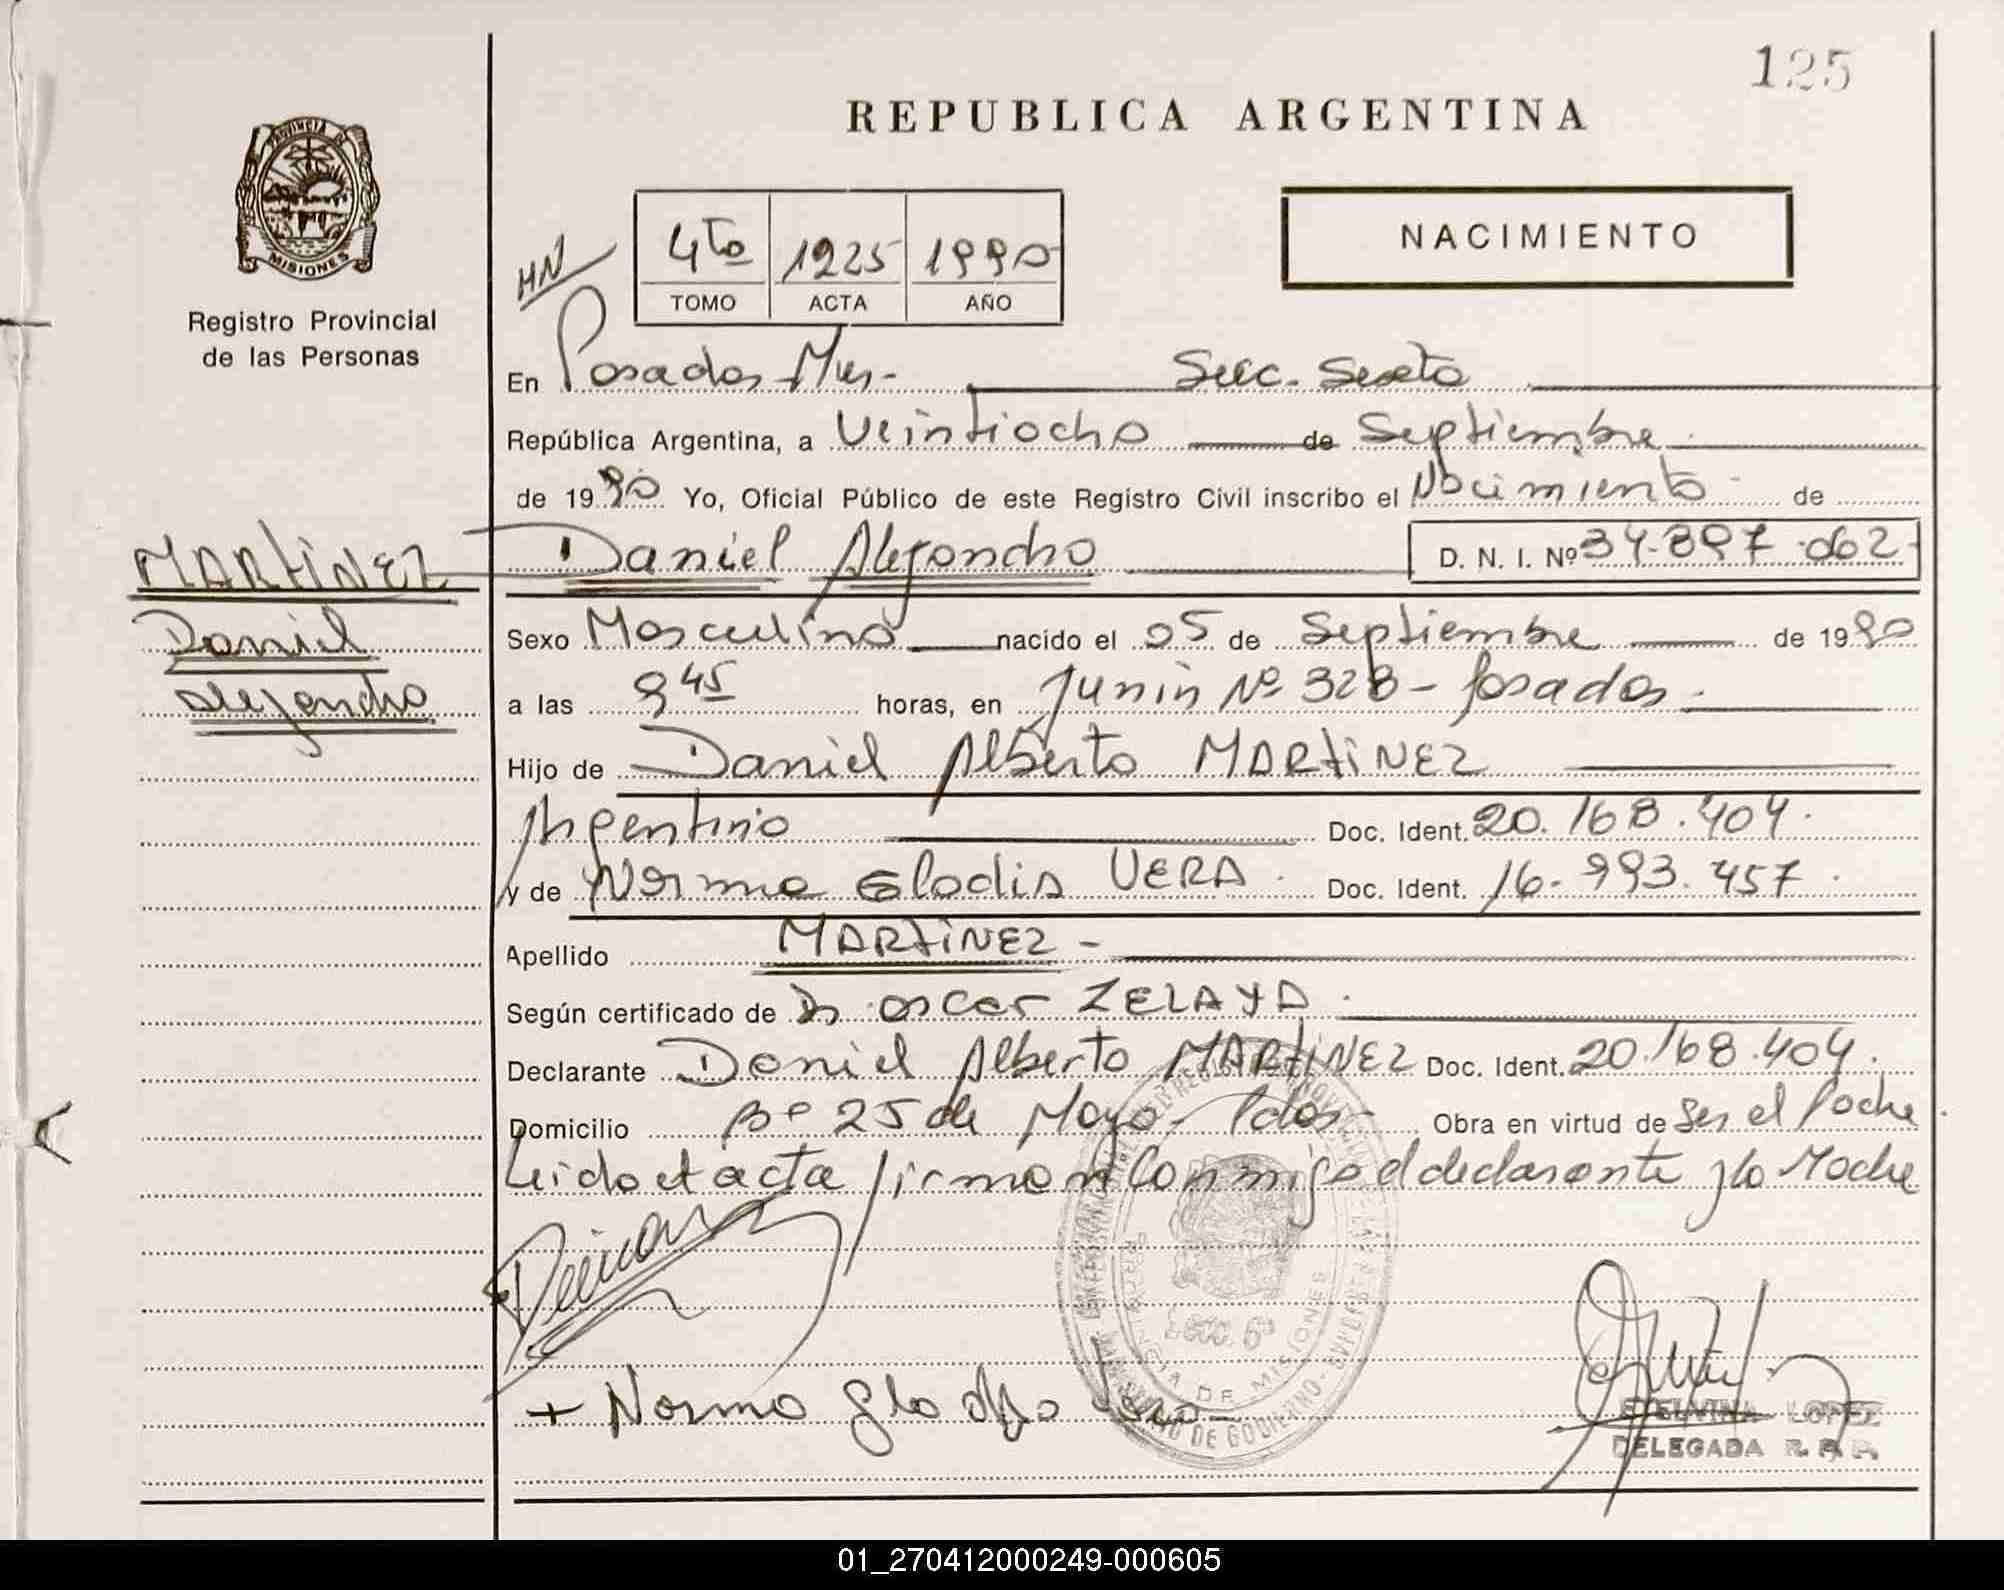 125
REPUBLICA ARGENTINA
PROVINCIA DE
MISIONES
Registro Provincial
de las Personas
NACIMIENTO
HN
4to 1225 1990
TOMO ACTA AÑO
En Posadas Mnes.- Secc. Sexta
República Argentina, a Veintiocho de Septiembre
de 1990 Yo, Oficial Público de este Registro Civil inscribo el Nacimiento de
MARTiNEZ
Daniel
Alejandro
Daniel Alejandro D. N. I. Nº 34.897.062
Sexo Masculino nacido el 05 de Septiembre de 1990
a las 9 45 horas, en Junin Nº 328 - Posadas.
Hijo de Daniel Alberto MARTiNEZ
Argentino Doc. Ident. 20.168.404.
y de Norma Gladis VERA. Doc. Ident. 16.993.457.
Apellido MARTiNEZ -
Según certificado de Dr. Oscar ZELAYA.
Declarante Daniel Alberto MARTiNEZ Doc. Ident. 20.168.404.
Domicilio Bº 25 de Mayo - Pdas - Obra en virtud de Ser el Padre
Leida el acta firman conmigo el declarante y la Madre
SECC. 6ª
PROVINCIA DE MISIONES
DE GOBIERNO
+ Norma Gladys Vera
EDELVINA LOPEZ
DELEGADA R. P. P.
01_270412000249-000605